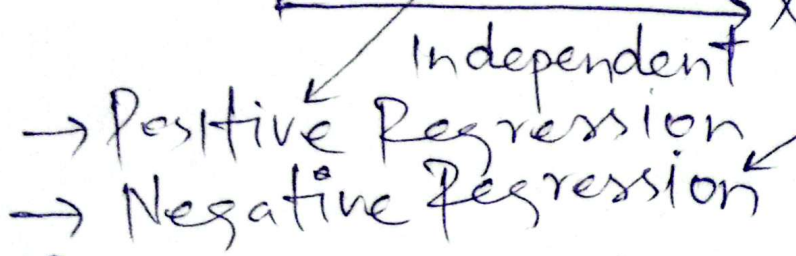 X
Independent
→ Positive Regression
→ Negative Regression